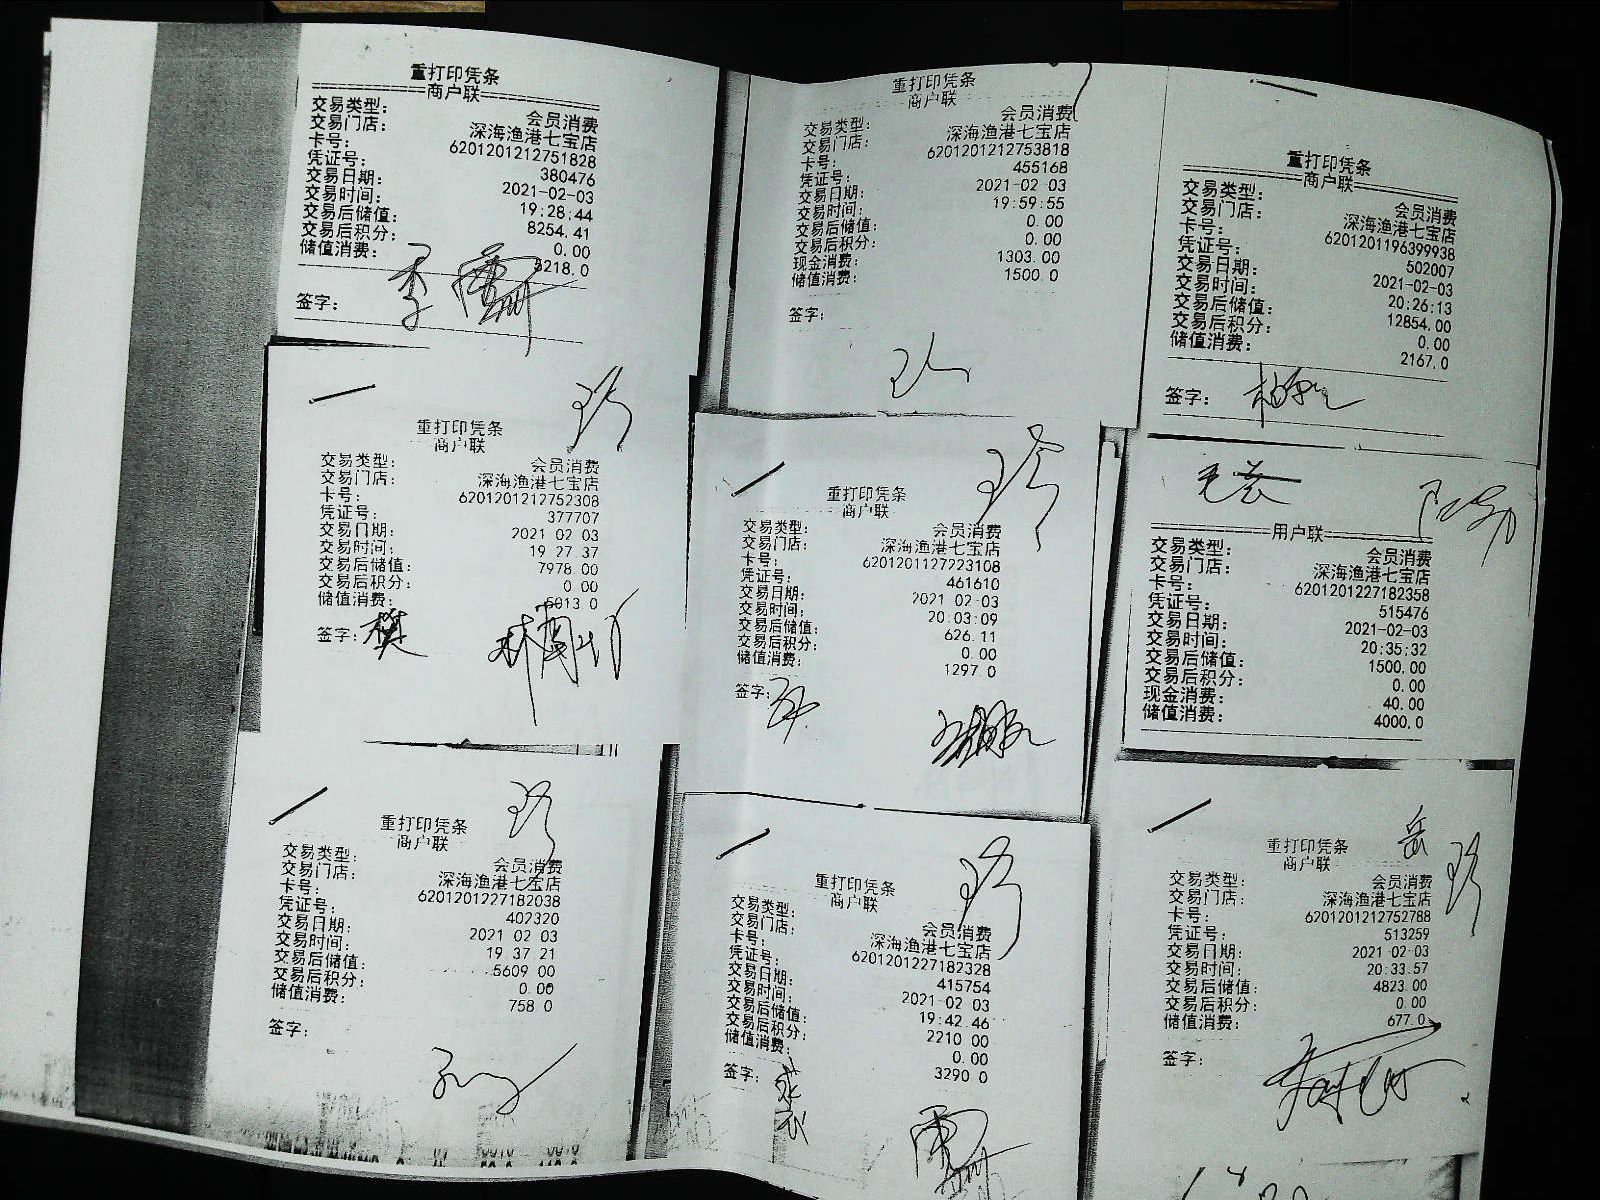 重打印凭条
商户联
交易类型： 会员消费
交易门店： 深海渔港七宝店
卡号： 6201201212751828
凭证号： 380476
交易日期： 2021-02-03
交易时间： 19:28:44
交易后储值： 8254.41
交易后积分： 0.00
储值消费： 5218.0
签字：
重打印凭条
商户联
交易类型： 会员消费
交易门店： 深海渔港七宝店
卡号： 6201201212753818
凭证号： 455168
交易日期： 2021-02 03
交易时间： 19:59:55
交易后储值： 0.00
交易后积分： 0.00
现金消费： 1303.00
储值消费： 1500.0
签字：
重打印凭条
商户联
交易类型： 会员消费
交易门店： 深海渔港七宝店
卡号： 6201201196399938
凭证号： 502007
交易日期： 2021-02-03
交易时间： 20:26:13
交易后储值： 12854.00
交易后积分： 0.00
储值消费： 2167.0
签字：
重打印凭条
商户联
交易类型： 会员消费
交易门店： 深海渔港七宝店
卡号： 6201201212752308
凭证号： 377707
交易日期： 2021 02 03
交易时间： 19 27 37
交易后储值： 7978 00
交易后积分： 0 00
储值消费： 5013 0
签字： 樊
重打印凭条
商户联
交易类型： 会员消费
交易门店： 深海渔港七宝店
卡号： 6201201127223108
凭证号： 461610
交易日期： 2021 02-03
交易时间： 20:03:09
交易后储值： 626.11
交易后积分： 0.00
储值消费： 1297.0
签字：
用户联
交易类型： 会员消费
交易门店： 深海渔港七宝店
卡号： 6201201227182358
凭证号： 515476
交易日期： 2021-02-03
交易时间： 20:35:32
交易后储值： 1500.00
交易后积分： 0.00
现金消费： 40.00
储值消费： 4000.0
重打印凭条
商户联
交易类型： 会员消费
交易门店： 深海渔港七宝店
卡号： 6201201227182038
凭证号： 402320
交易日期： 2021 02 03
交易时间： 19 37 21
交易后储值： 5609 00
交易后积分： 0.00
储值消费： 758 0
签字：
重打印凭条
商户联
交易类型： 会员消费
交易门店： 深海渔港七宝店
卡号： 6201201227182328
凭证号： 415754
交易日期： 2021 02 03
交易时间： 19:42 46
交易后储值： 2210 00
交易后积分： 0.00
储值消费： 3290 0
签字：
岳
重打印凭条
商户联
交易类型： 会员消费
交易门店： 深海渔港七宝店
卡号： 6201201212752788
凭证号： 513259
交易日期： 2021 02-03
交易时间： 20:33.57
交易后储值： 4823 00
交易后积分： 0.00
储值消费： 677.0
签字：